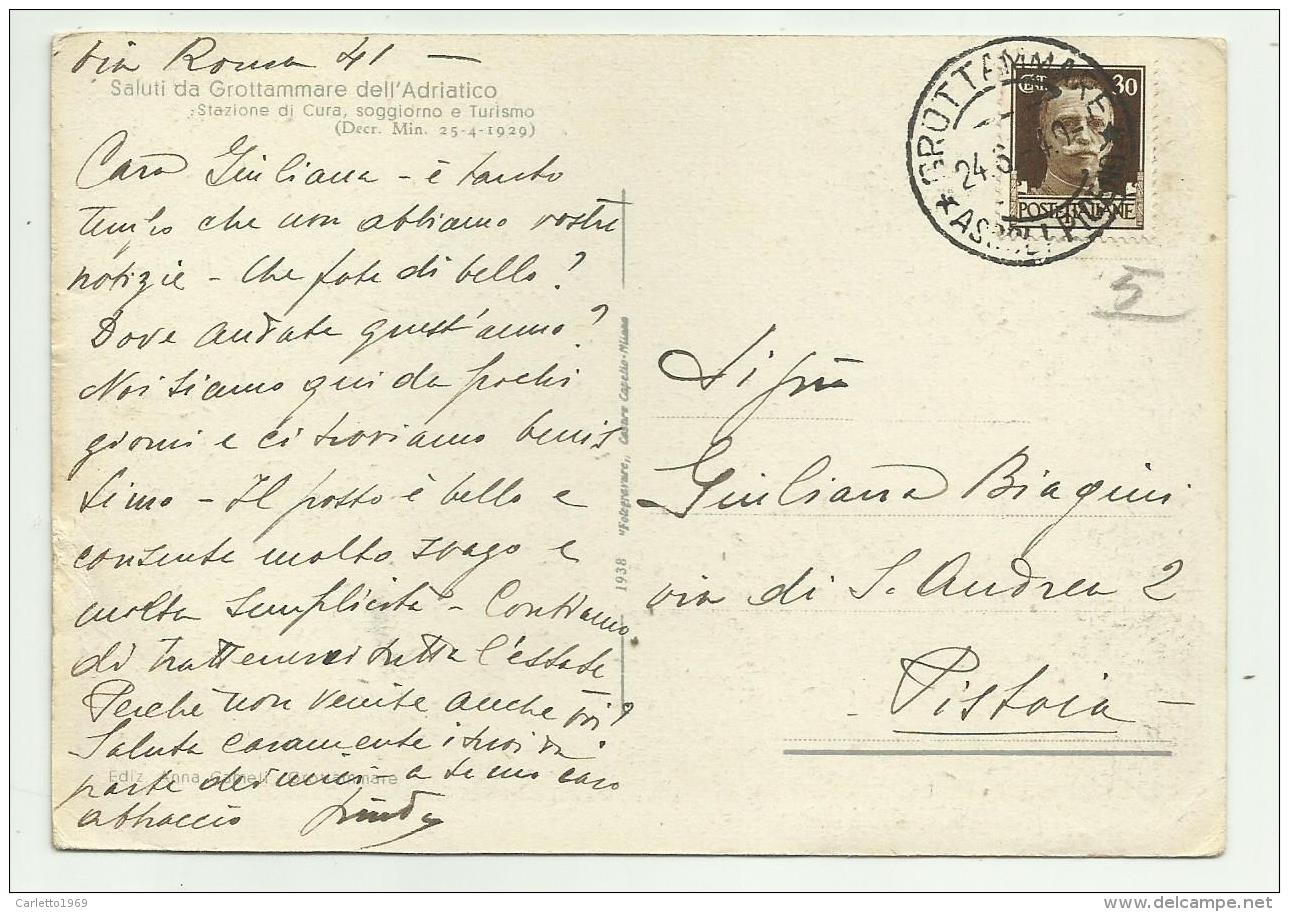 Via Roma 41 —
Saluti da Grottammare dell'Adriatico
Stazione di Cura, soggiorno e Turismo
(Decr. Min. 25-4-1929)
Cara Giuliana - è tanto
tempo che non abbiamo vostre
notizie - Che fate di bello?
Dove andate quest'anno?
Noi siamo qui da pochi
giorni e ci troviamo benis
simo - Il posto è bello e
consente molto svago e
molta semplicità - Contiamo
di trattenerci tutta l'estate
Perché non venite anche voi?
Saluta caramente i tuoi da
parte dei miei - a te un caro
abbraccio
Ediz. Anna Grottammare
1938 "Fotogravure" Cesare Capello - Milano
GROTTAMMARE
24.6
ASCOLI PICENO
CENT. 30
POSTE ITALIANE
5
Sig.na
Giuliana Biagini
via di S. Andrea 2
- Pistoia -
Carletto1969
www.delcampe.net